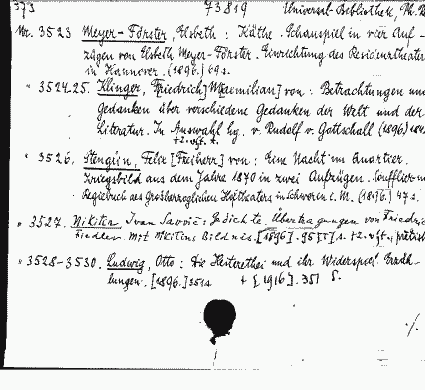 373 73819 Universal-Bibliothek, Ph. R
No. 3523 Meyer-Förster, Elsbeth: Käthe. Schauspiel in vier Auf-
zügen von Elsbeth Meyer-Förster. Einrichtung des Residenztheaters
in Hannover. (1896.) 69 s.
" 3524.25. Klinger, [Friedrich] M[aximilian] von: Betrachtungen und
Gedanken über verschiedene Gedanken der Welt und der
Literatur. In Auswahl hg. v. Rudolf v. Gottschall (1896)
" 3526. Stengün, Felix [Freiherr] von: Eine Nacht im Quartier.
Kriegsbild aus dem Jahre 1870 in zwei Aufzügen. Soufflier- und
Regiebuch des Grossherzoglichen Hoftheaters in Schwerin i. M. (1896.) 47 s.
" 3527. Nikitin, Ivan Savvič: Gedichte. Übertragungen von Friedrich
Fiedler. Mit Nikitins Bildnis. [1896]. 95 [1] s. +2. Aufl.,
" 3528-3530. Ludwig, Otto: Die Heiterethei und ihr Widerspiel. Erzäh-
lungen. [1896.] 351 s + [1916]. 351 S.